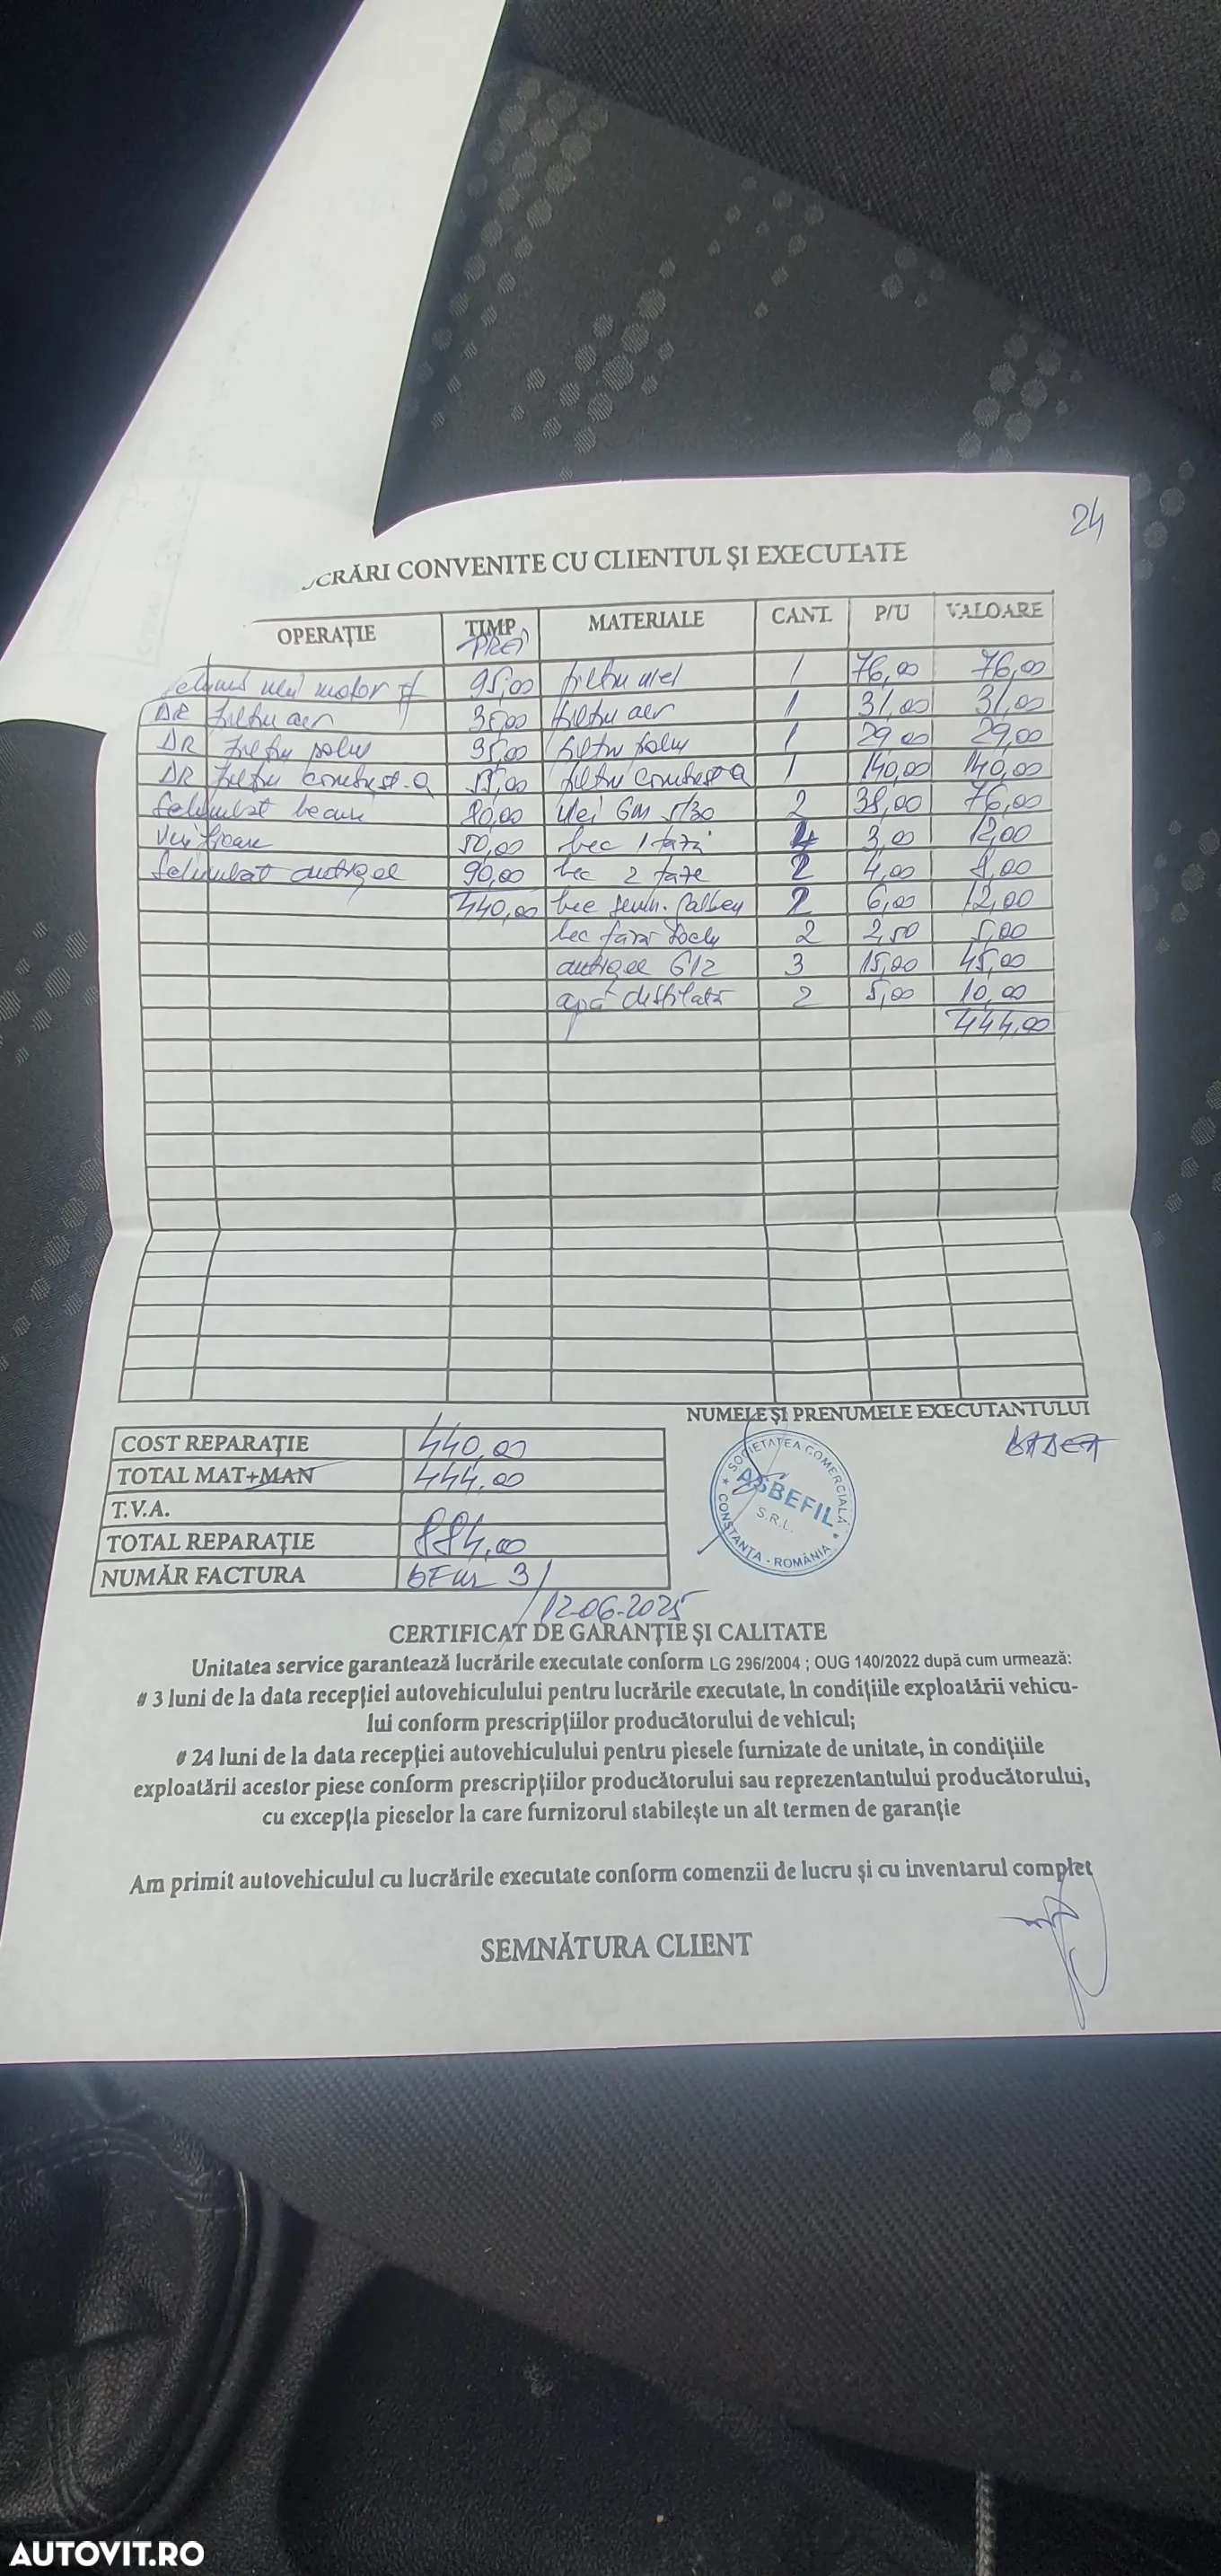 24
CRĂRI CONVENITE CU CLIENTUL ȘI EXECUTATE
OPERAȚIE TIMP MATERIALE CANT. P/U VALOARE
PREȚ
ulei motor 95,00 filtru ulei 1 76,00 76,00
DR filtru aer 35,00 filtru aer 1 31,00 31,00
DR filtru polen 35,00 filtru polen 1 29,00 29,00
DR filtru combust. 55,00 filtru combust 1 140,00 140,00
Schimbat becuri 80,00 Ulei GM 5/30 2 38,00 76,00
Verificare 50,00 bec 1 fază 4 3,00 12,00
Schimbat antigel 90,00 bec 2 faze 2 4,00 8,00
440,00 bec semn. galben 2 6,00 12,00
bec fără soclu 2 2,50 5,00
antigel G12 3 15,00 45,00
apă distilată 2 5,00 10,00
444,00
NUMELE ȘI PRENUMELE EXECUTANTULUI
BADEA
COST REPARAȚIE 440,00
TOTAL MAT+MAN 444,00
T.V.A.
TOTAL REPARAȚIE 884,00
NUMĂR FACTURA 31
12-06-2025
SOCIETATEA COMERCIALĂ
ASBEFIL
S.R.L.
CONSTANȚA - ROMÂNIA
CERTIFICAT DE GARANȚIE ȘI CALITATE
Unitatea service garantează lucrările executate conform LG 296/2004 ; OUG 140/2022 după cum urmează:
# 3 luni de la data recepției autovehiculului pentru lucrările executate, în condițiile exploatării vehicu-
lui conform prescripțiilor producătorului de vehicul;
# 24 luni de la data recepției autovehiculului pentru piesele furnizate de unitate, in condițiile
exploatării acestor piese conform prescripțiilor producătorului sau reprezentantului producătorului,
cu excepția pieselor la care furnizorul stabilește un alt termen de garanție
Am primit autovehiculul cu lucrările executate conform comenzii de lucru și cu inventarul complet
SEMNĂTURA CLIENT
AUTOVIT.RO